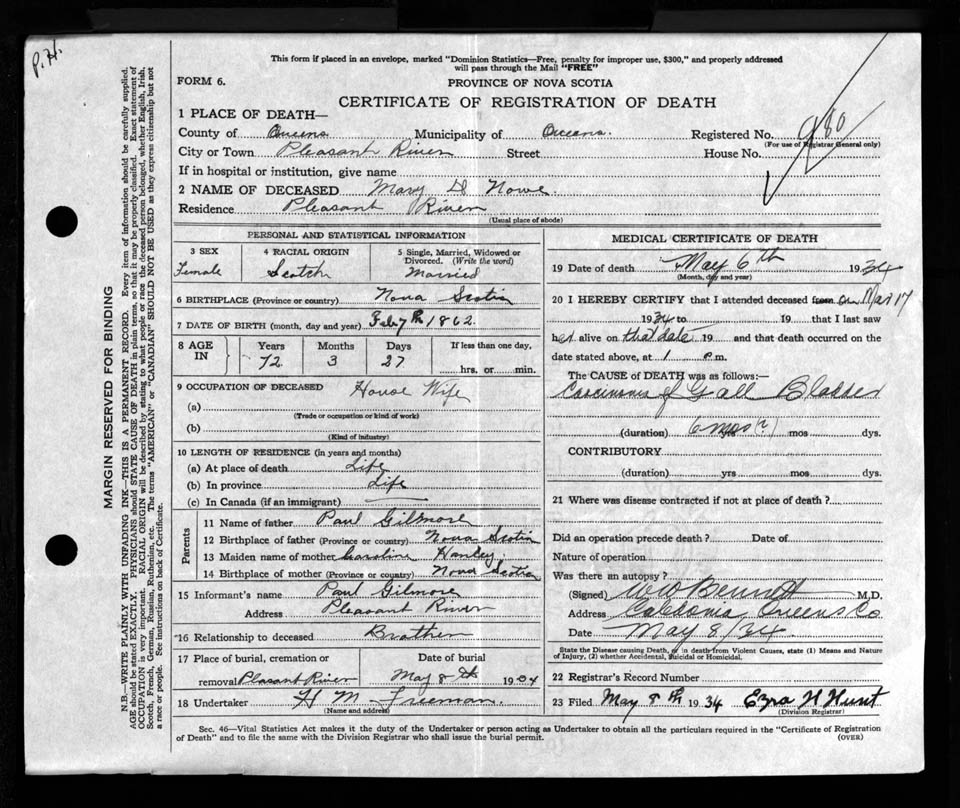 P.H.
This form if placed in an envelope, marked "Dominion Statistics—Free, penalty for improper use, $300," and properly addressed
will pass through the Mail "FREE"
FORM 6.
PROVINCE OF NOVA SCOTIA
CERTIFICATE OF REGISTRATION OF DEATH
1 PLACE OF DEATH—
County of Queens Municipality of Queens. Registered No. 980
(For use of Registrar General only)
City or Town Pleasant River Street House No.
If in hospital or institution, give name
2 NAME OF DECEASED Mary D Nowe
Residence Pleasant River
(Usual place of abode)
PERSONAL AND STATISTICAL INFORMATION
3 SEX Female
4 RACIAL ORIGIN Scotch
5 Single, Married, Widowed or Divorced. (Write the word) Married
6 BIRTHPLACE (Province or country) Nova Scotia
7 DATE OF BIRTH (month, day and year) Feb 7th 1862
8 AGE IN Years 72 Months 3 Days 27 If less than one day, hrs. or min.
9 OCCUPATION OF DECEASED House Wife
(a)
(Trade or occupation or kind of work)
(b)
(Kind of industry)
10 LENGTH OF RESIDENCE (in years and months)
(a) At place of death Life
(b) In province Life
(c) In Canada (if an immigrant)
Parents
11 Name of father Paul Gilmore
12 Birthplace of father (Province or country) Nova Scotia
13 Maiden name of mother Caroline Hanley.
14 Birthplace of mother (Province or country) Nova Scotia
15 Informant's name Paul Gilmore
Address Pleasant River
16 Relationship to deceased Brother
17 Place of burial, cremation or removal Pleasant River
Date of burial May 8th 1934
18 Undertaker H M Freeman
(Name and address)
MEDICAL CERTIFICATE OF DEATH
19 Date of death May 6th 1934
(Month, day and year)
20 I HEREBY CERTIFY that I attended deceased from on Mar 17
1934 to 19 that I last saw
her alive on that date 19 and that death occurred on the
date stated above, at 1 P.m.
The CAUSE of DEATH was as follows:—
Carcinoma of Gall Bladder
(duration) 6 mos (?) yrs mos dys.
CONTRIBUTORY
(duration) yrs mos dys.
21 Where was disease contracted if not at place of death?
Did an operation precede death? Date of
Nature of operation
Was there an autopsy?
(Signed) Bennett M.D.
Address Caledonia, Queens Co
Date May 8/34.
State the Disease causing Death, or in death from Violent Causes, state (1) Means and Nature
of Injury, (2) whether Accidental, Suicidal or Homicidal.
22 Registrar's Record Number
23 Filed May 8th 1934 Ezra H Hunt
(Division Registrar)
Sec. 46—Vital Statistics Act makes it the duty of the Undertaker or person acting as Undertaker to obtain all the particulars required in the "Certificate of Registration
of Death" and to file the same with the Division Registrar who shall issue the burial permit. (OVER)
MARGIN RESERVED FOR BINDING
N.B.—WRITE PLAINLY WITH UNFADING INK—THIS IS A PERMANENT RECORD. Every item of information should be carefully supplied.
AGE should be stated EXACTLY. PHYSICIANS should STATE CAUSE OF DEATH in plain terms, so that it may be properly classified. Exact statement of
OCCUPATION is very important. RACIAL ORIGIN will be described by stating to what people or race the deceased person belonged, whether English, Irish,
Scotch, French, German, Russian, Ruthenian, etc. The terms "AMERICAN" or "CANADIAN" SHOULD NOT BE USED as they express citizenship but not
a race or people. See instructions on back of Certificate.